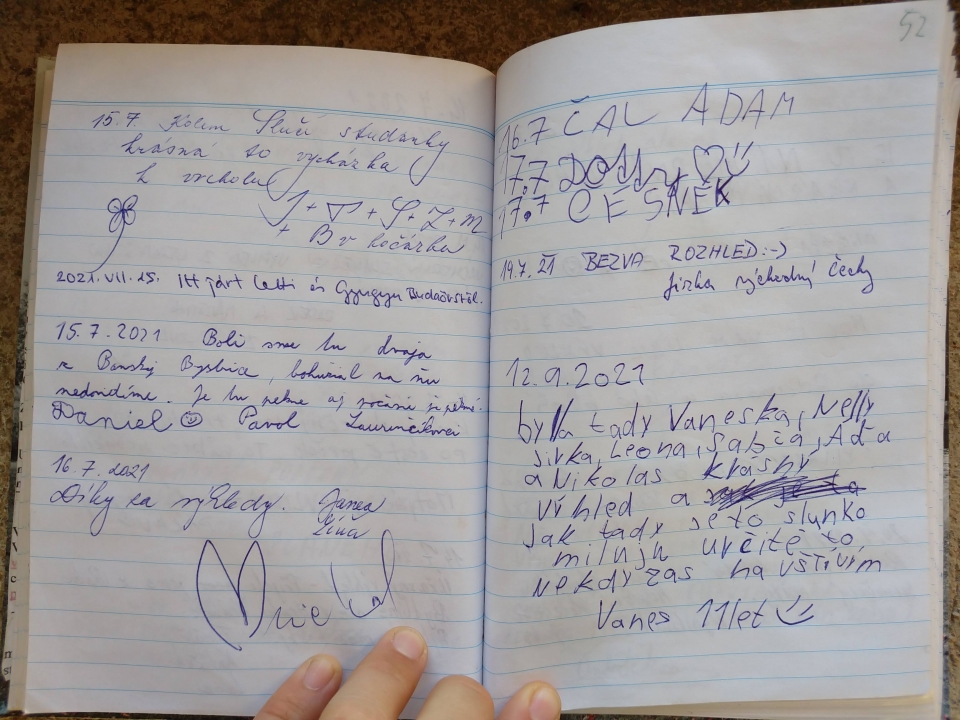 15.7 Kolem Slučí studánky
krásná to vycházka
k vrcholu
J + T + S + Z + M
+ B v kočárku
2021.VII.15. Itt járt Letti és Gyugyu Budaörsről.
15.7.2021 Boli sme tu dvaja
z Banskej Bystrice, bohužial na ňu
nedovidíme. Je tu pekne aj počasie je pekné.
Daniel Pavol Laurenčíkovci
16.7.2021
Díky za výhledy.
52
16.7 ČAL ADAM
17.7
17.7 ČESNEK
19.7.21 BEZVA ROZHLED:-)
Jirka východný Čechy
12.9.2021
byla tady Vaneska, Nelly
Jirka, Leona, Sabča, Áďa
a Nikolas krásný
výhled a
jak tady je to slunko
miluju určitě to
někdy zas navštívím
Vanes 11let